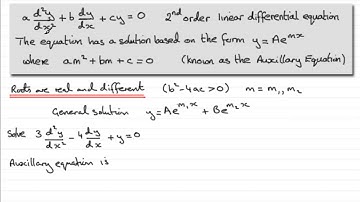 a d²y/dx² + b dy/dx + cy = 0   2nd order linear differential equation
The equation has a solution based on the form y = Ae^mx
where am² + bm + c = 0 (known as the Auxillary Equation)
Roots are real and different (b² - 4ac > 0) m = m₁, m₂
General solution y = Ae^m₁x + Be^m₂x
Solve 3 d²y/dx² - 4 dy/dx + y = 0
Auxillary equation is